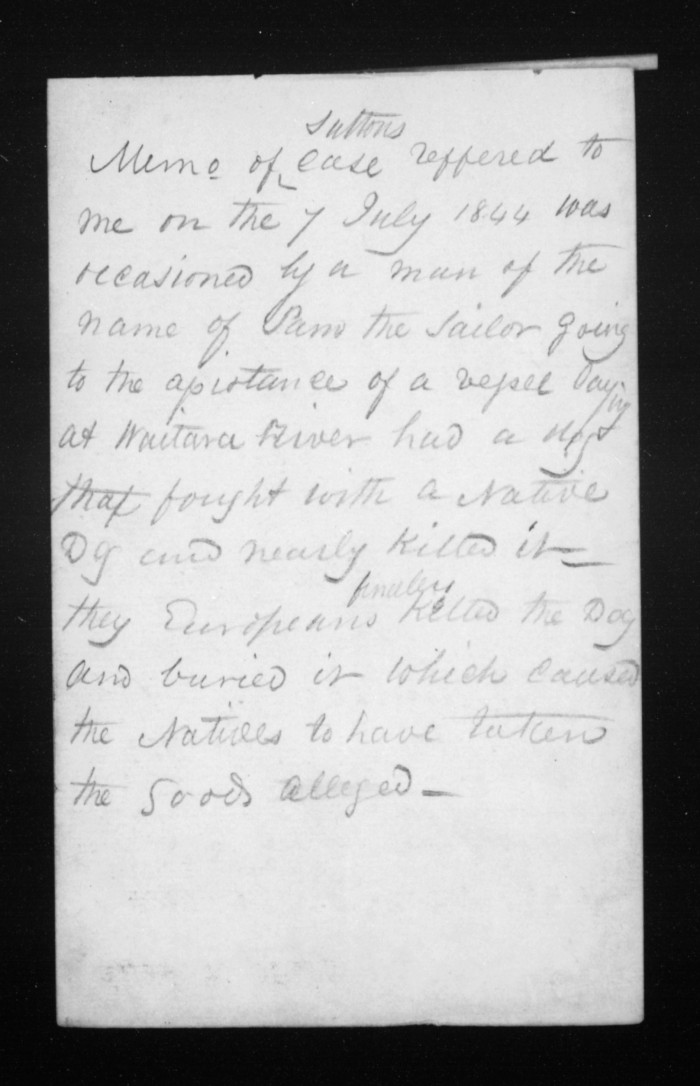 Suttons
Memo of Case reffered to
me on the 7 July 1844 was
occasioned by a man of the
name of Sam the Sailor going
to the assistance of a vessel laying
at Waitara River had a dog
that fought with a Native
Dg and nearly killed it —
finaley
they Europeans killed the Dog
and buried it which caused
the Natives to have taken
the Goods alleged —